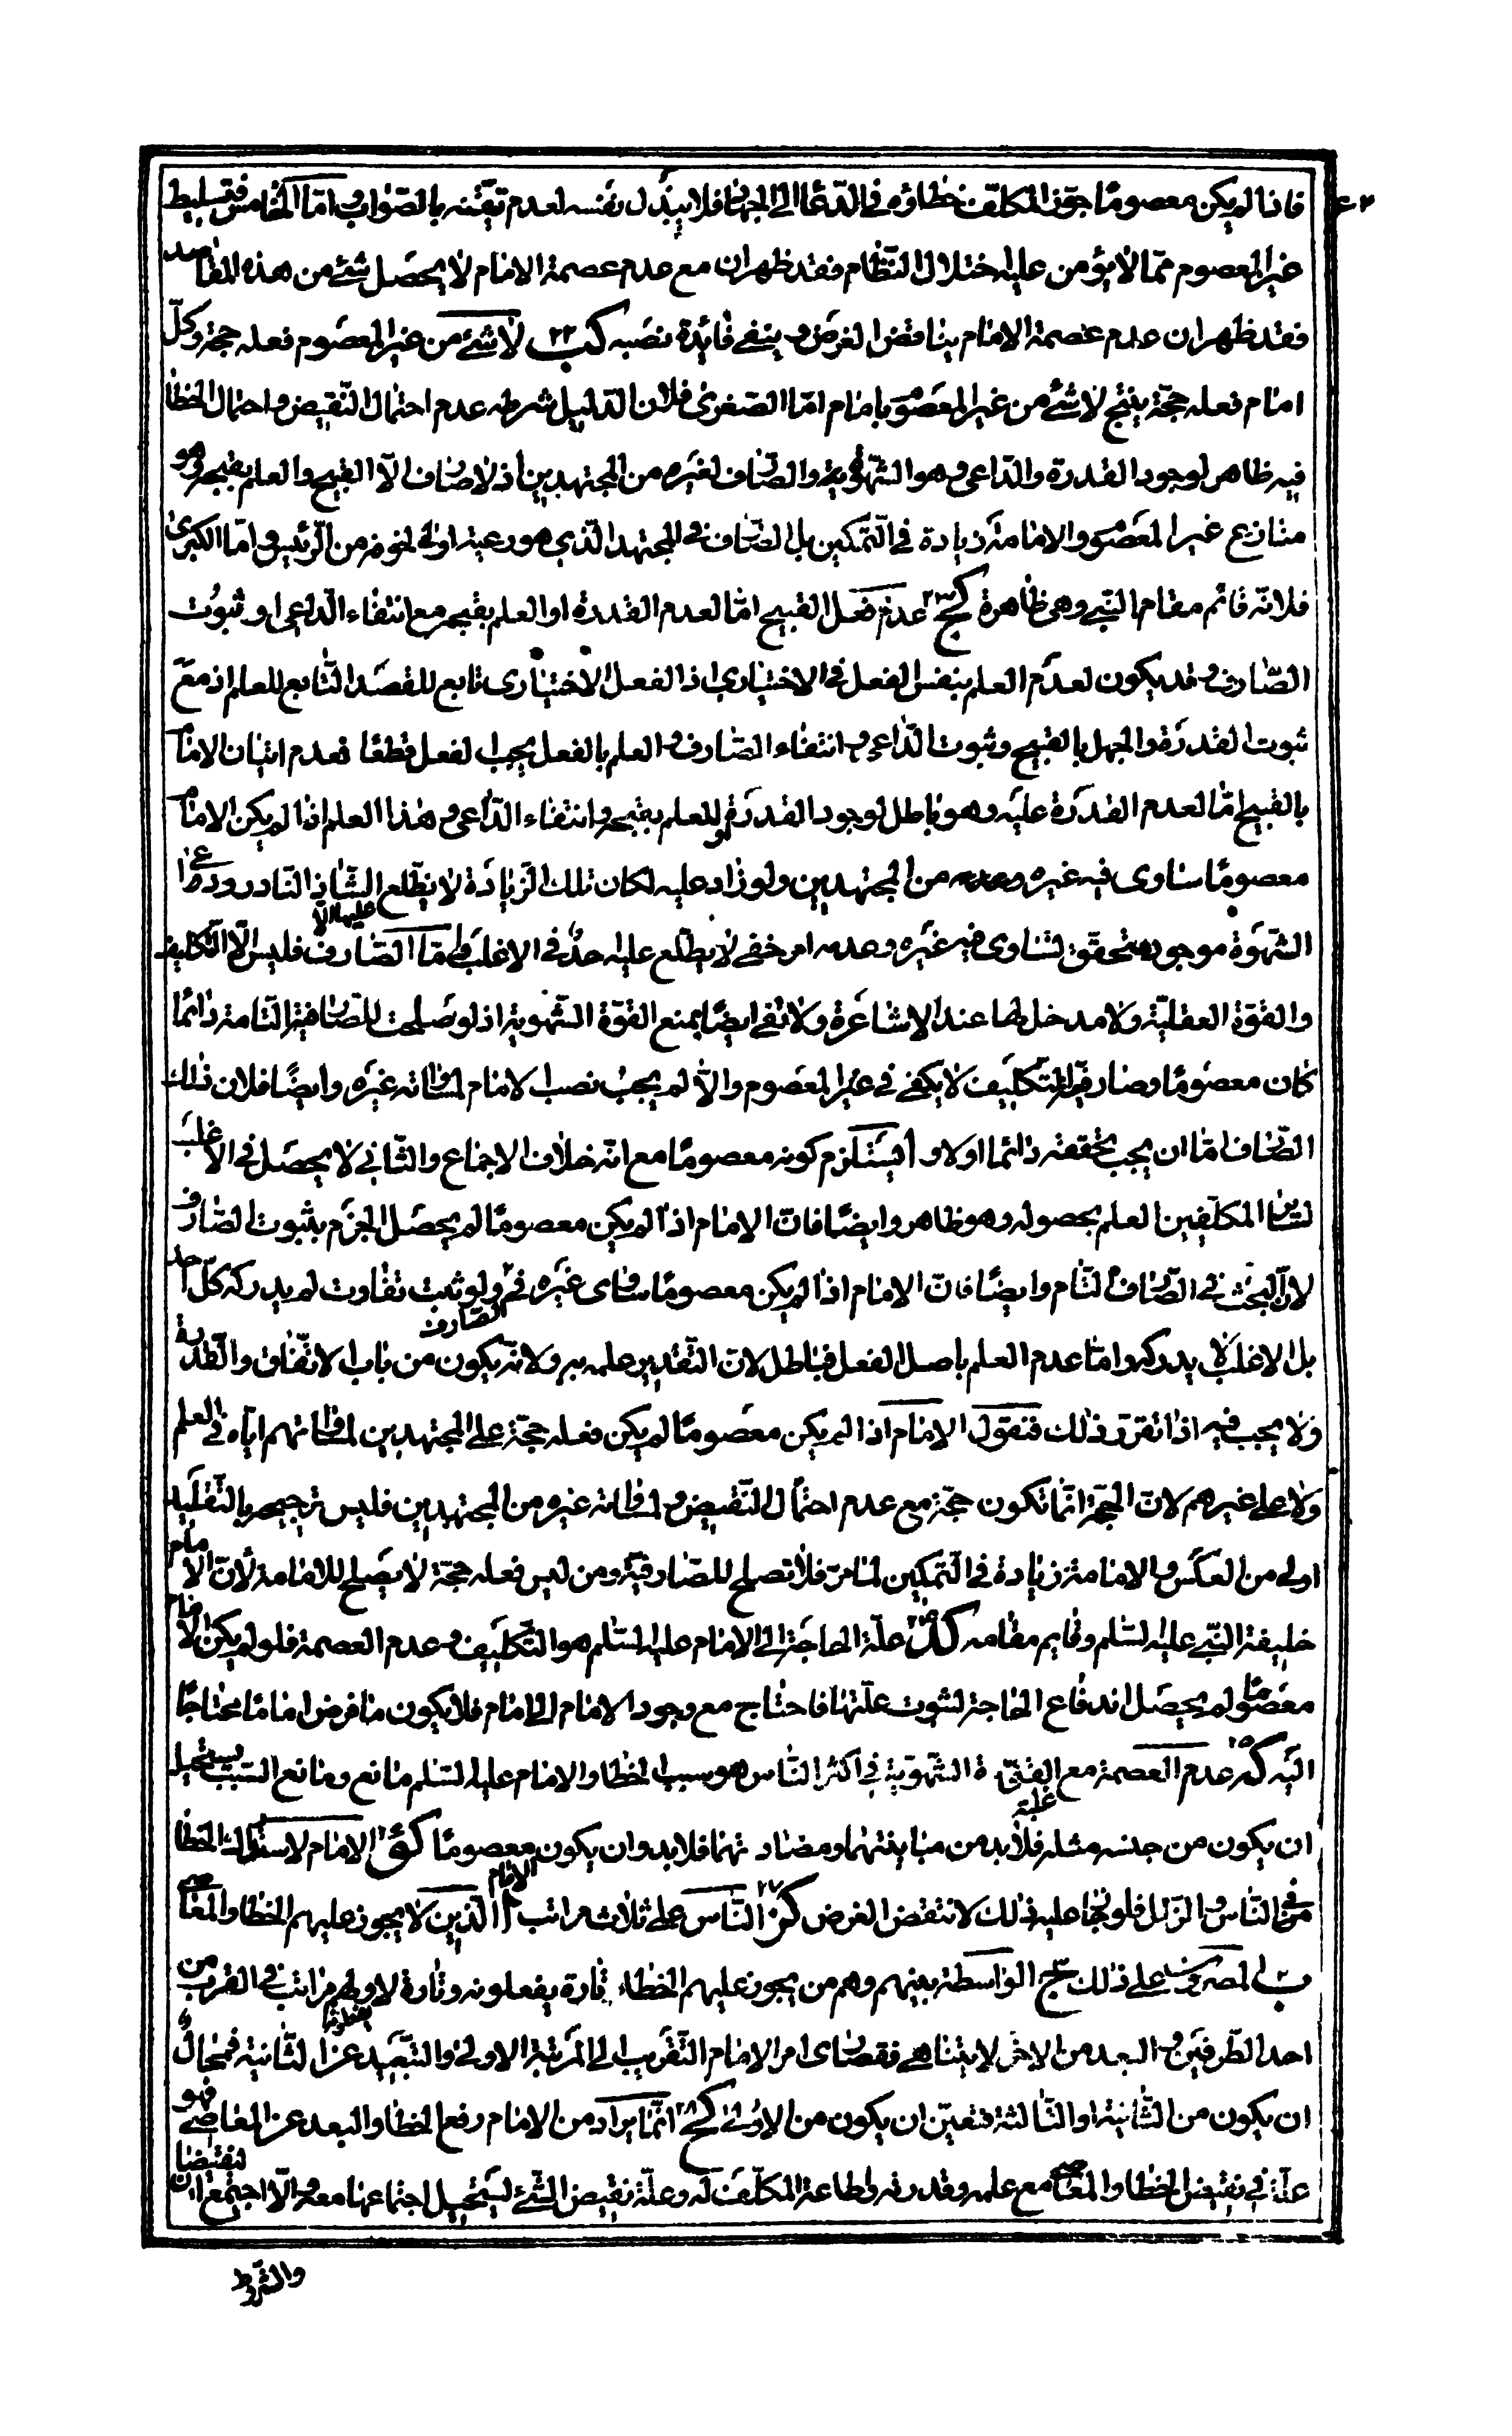 فاذا لم يكن معصومًا جوّز المكلف خطاؤه في الدّعاء الى الجهاد فلا يبذل نفسه لعدم تيقّنه بالصّواب وامّا الخامس فتسليط
غير المعصوم ممّا لا يؤمن عليه اختلال النّظام فقد ظهر ان مع عدم عصمة الامام لا يحصل شئ من هذه المقاصد
فقد ظهر ان عدم عصمة الامام يناقض الغرض وينفى فائدة نصبه كب ٢٢ لا شئ من غير المعصوم فعله حجة وكلّ
امام فعله حجّة ينتج لا شئ من غير المعصوم بامام امّا الصّغرى فلان الدّليل شرطه عدم احتمال النّقيض واحتمال الخطأ
فيه ظاهر لوجود القدرة والدّاعى وهو الشّهويّة والصّارف لغيره من المجتهدين اذ لا صارف الّا القبح والعلم بقبحه وهو
متنازع غير المعصوم والامامة زيادة في التّمكين بل الصّارف في المجتهد الّذي هو رعية اولى لخوفه من الرّئيس وامّا الكبرى
فلانّه قائم مقام النّبي وهى ظاهرة كج ٢٣ عدم فعل القبيح امّا لعدم القدرة او العلم بقبحه مع انتفاء الدّاعى او ثبوت
الصّارف وقد يكون لعدم العلم بنفس الفعل في الاختيارى اذ الفعل الاختيارى تابع للقصد التّابع للعلم اذ مع
ثبوت القدرة والجهل بالقبح وثبوت الدّاعى وانتفاء الصّارف والعلم بالفعل يجب الفعل قطعًا فعدم اتيان الامام
بالقبيح امّا لعدم القدرة عليه وهو باطل لوجود القدرة او للعلم بقبحه وانتفاء الدّاعى وهذا العلم اذا لم يكن الامام
معصومًا ساوى فيه غيره وعدمه من المجتهدين ولو زاد عليه لكان تلك الزيادة لا يطّلع عليها الّا الشّاذ النّادر ودعا
الشهوة موجود متحقق لتساوى فيه غيره وعدمه امر خفى لا يطّلع عليه احد في الاغلب وامّا الصّارف فليس الّا التّكليف
والقوّة العقليّة ولا مدخل لها عند الاشاعرة ولا تفى ايضًا بمنع القوّة الشّهوية اذ لو صلحت للصّارفية التّامة دائمًا
كان معصومًا وصارفية التّكليف لا يكفى في غير المعصوم والّا لم يجب نصب الامام لمساواته غيره وايضًا فلان ذلك
الصّارف امّا ان يجب تحققه دائما اولا والاوّل يستلزم كونه معصومًا مع انّه خلاف الاجماع والثّاني لا يحصل في الاغلب
لسائر المكلّفين العلم بحصوله وهو ظاهر وايضًا فانّ الامام اذا لم يكن معصومًا لم يحصل الجزم بثبوت الصّارف
لانّ البحث في الصّارف التّام وايضًا فانّ الامام اذا لم يكن معصومًا ساوى غيره في الصّارف ولو ثبت تفاوت لم يدركه كلّ احد
بل الاغلب لا يدركه وامّا عدم العلم باصل الفعل فباطل لانّ التّقدير علمه به ولانّه يكون من باب الاتّفاق والنّدرة
ولا يجب فيه اذا تقرّر ذلك فنقول الامام اذا لم يكن معصومًا لم يكن فعله حجّة على المجتهدين لمساواتهم ايّاه في العلم
ولا على غيرهم لانّ الحجّة انّما تكون حجّة مع عدم احتمال النّقيض ولمساواته غيره من المجتهدين فليس ترجيحه بالتّقليد
اولى من العكس والامامة زيادة في التّمكين لما مرّ فلا تصلح للصّارفيّة ومن ليس فعله حجّة لا يصلح للامامة لانّ الامام
خليفة النّبى عليه السّلم وقايم مقامه كد ٢٤ علّة الحاجة الى الامام عليه السّلم هو التّكليف وعدم العصمة فلو لم يكن الامام
معصومًا لم يحصل اندفاع الحاجة لثبوت علّتها فاحتاج مع وجود الامام الى امام فلا يكون ما فرض امامًا محتاجًا
اليه كه ٢٥ عدم العصمة مع غلبة القوّة الشّهويّة في اكثر النّاس هو سبب الخطا والامام عليه السّلم مانع ومانع السّبب يستحيل
ان يكون من جنسه ومثله فلا بد من مباينتهما ومضادتهما فلا بد وان يكون معصومًا كو ٢٦ الامام لاستدراك الخطا
من النّاس والزلل فلو جاز عليه ذلك لانتقض الغرض كز ٢٧ النّاس على ثلاث مراتب ا الامام الّذين لا يجوز عليهم الخطا والمعاصى
ب المصرّون على ذلك ج الواسطة بينهم وهم من يجوز عليهم الخطاء تارة يفعلونه وتارة لا ولهم مراتب في القرب من
احد الطّرفين والبعد من الاخر لا يتناهى فقصارى امر الامام التّقريب الى المرتبة الاولى والتّبعيد عن الثّانية فمحال
ان يكون من الثّانية او الثّالثة فتعيّن ان يكون من الاولى كح ٢٨ انّما يراد من الامام رفع الخطا والبعد عن المعاصى فهو
علّة في نقيض الخطا والمعاصى مع علمه وقدرته واطاعة المكلّف له وعلّة نقيض الشّئ يستحيل اجتماعها معه والّا اجتمع النقيضان
والشّرط